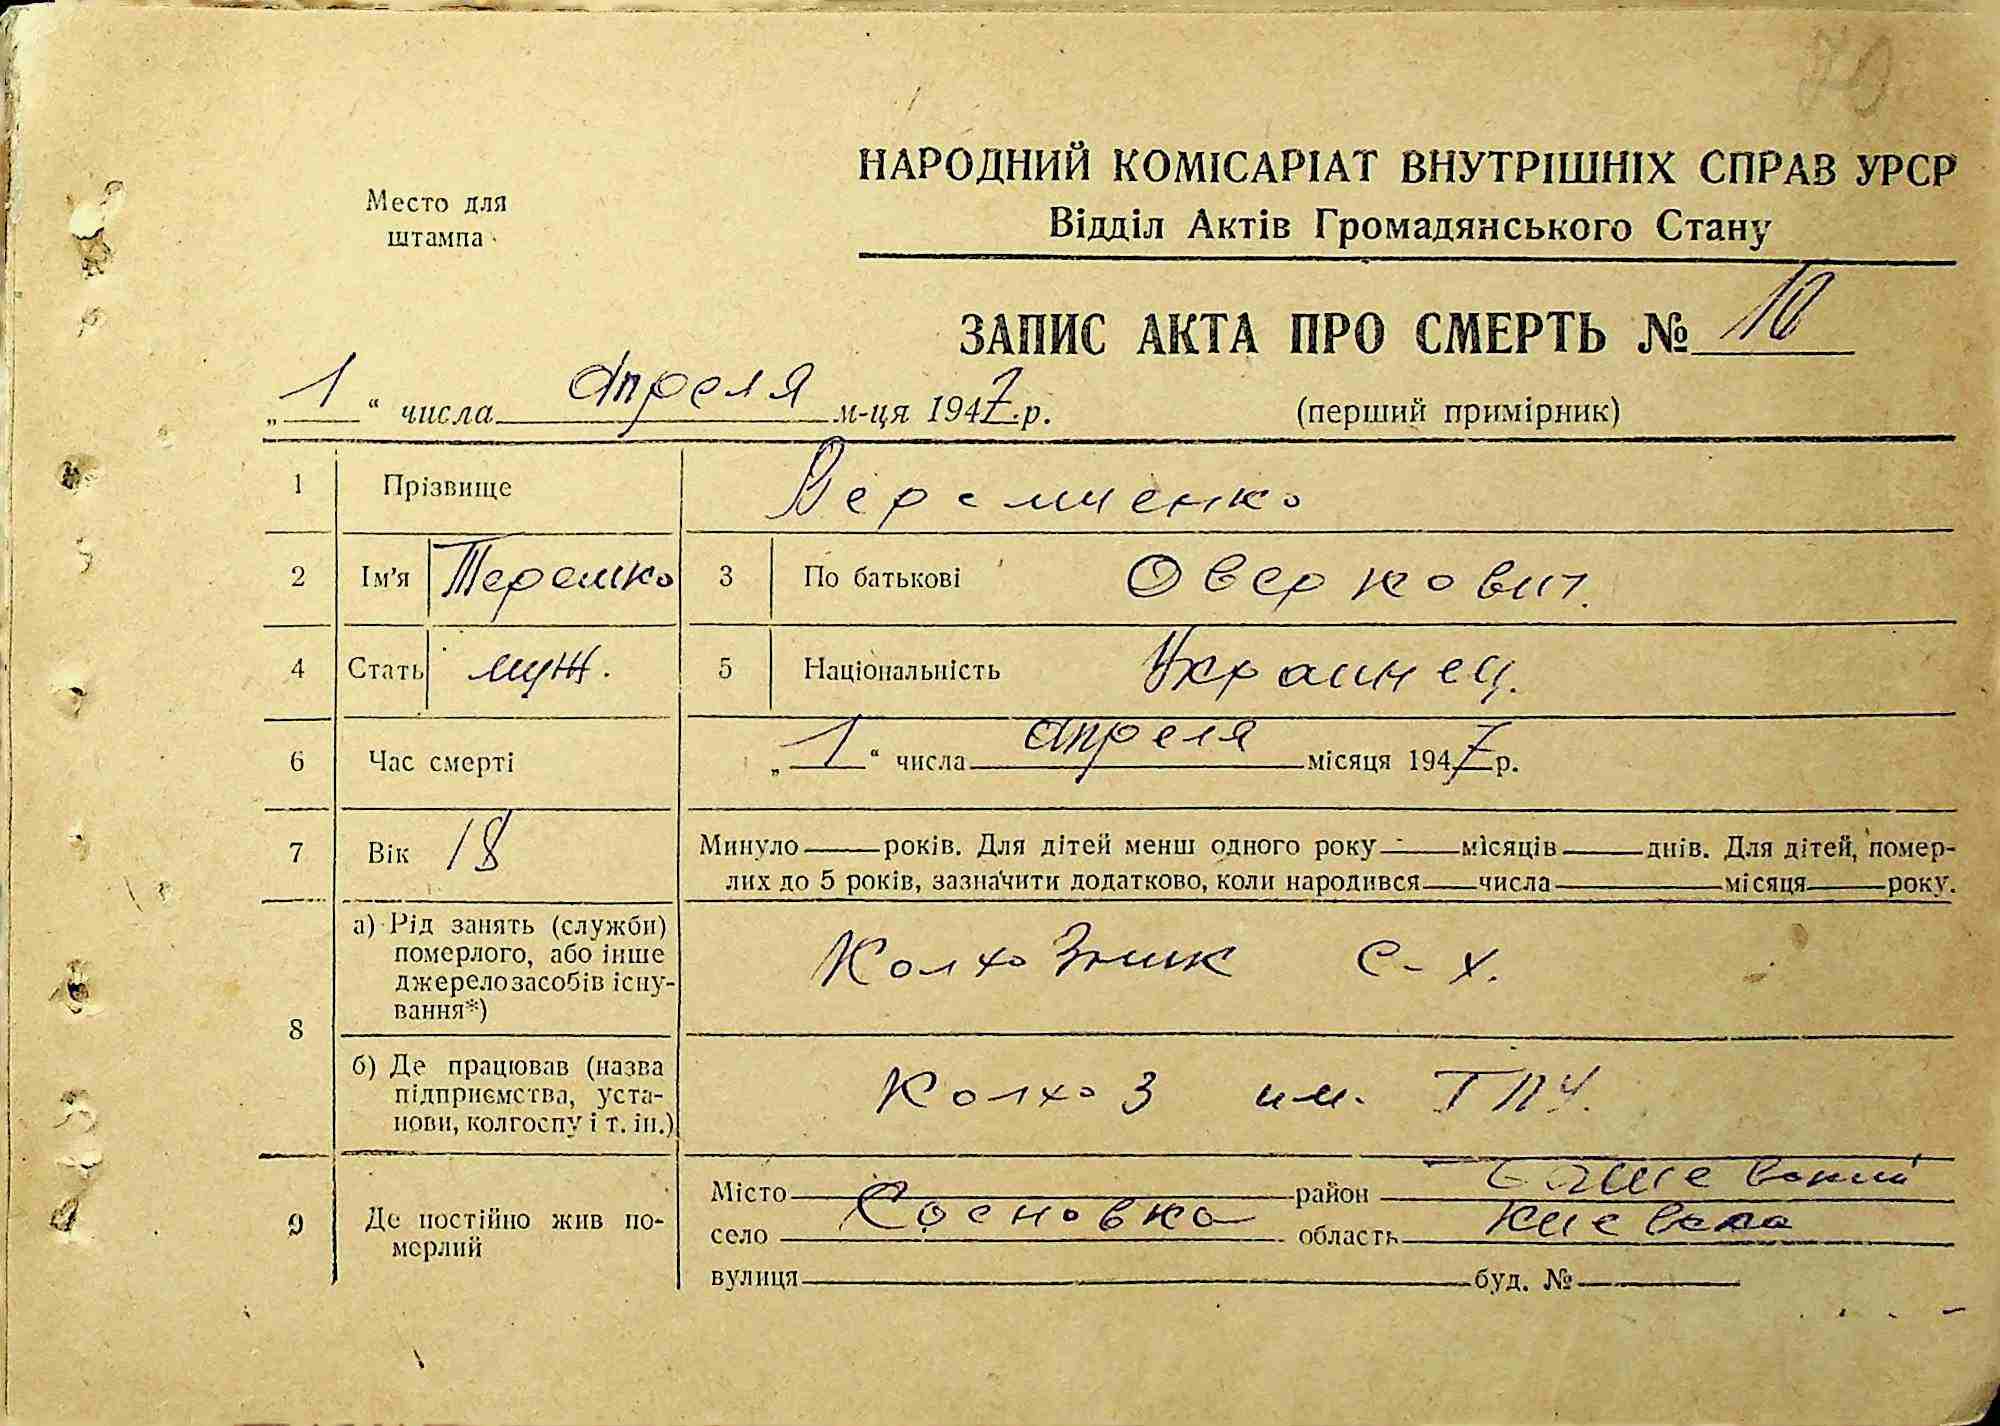 79
НАРОДНИЙ КОМІСАРІАТ ВНУТРІШНІХ СПРАВ УРСР
Место для
штампа
Відділ Актів Громадянського Стану
ЗАПИС АКТА ПРО СМЕРТЬ № 10
„ 1 “ числа апреля м-ця 1947 р. (перший примірник)
1 Прізвище Веремиенко
2 Ім’я Терешко 3 По батькові Оверкович.
4 Стать муж. 5 Національність Украинец.
6 Час смерті „ 1 “ числа апреля місяця 1947 р.
7 Вік 18 Минуло років. Для дітей менш одного року - місяців днів. Для дітей, помер-
лих до 5 років, зазначити додатково, коли народився числа місяця року.
8 а) Рід занять (служби)
померлого, або інше
джерело засобів існу-
вання*)
Колхозник с-х.
б) Де працював (назва
підприємства, уста-
нови, колгоспу і т. ін.)
Колхоз им. ГПУ.
9 Де постійно жив по-
мерлий
Місто район
село Сосновка область Киевска
вулиця буд. №